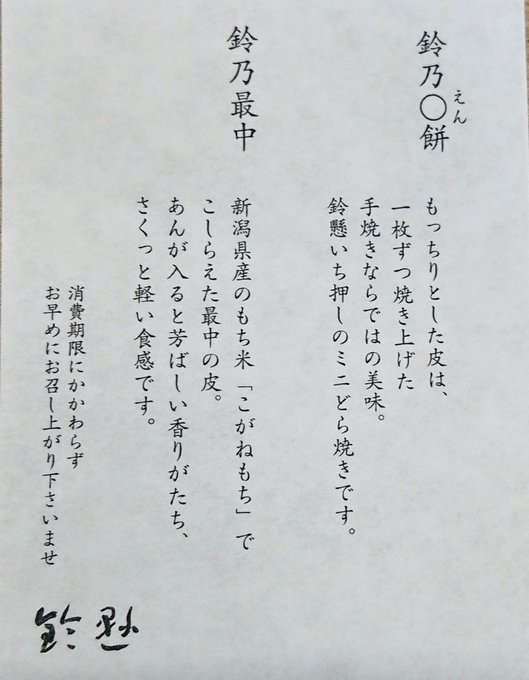 鈴乃〇餅
えん
もっちりとした皮は、
一枚ずつ焼き上げた
手焼きならではの美味。
鈴懸いち押しのミニどら焼きです。
鈴乃最中
新潟県産のもち米「こがねもち」で
こしらえた最中の皮。
あんが入ると芳ばしい香りがたち、
さくっと軽い食感です。
消費期限にかかわらず
お早めにお召し上がり下さいませ
鈴懸